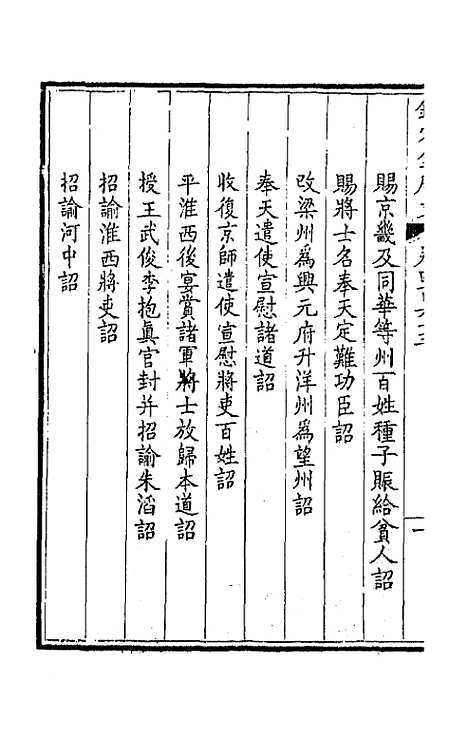 賜京畿及同華等州百姓種子賑給貧人詔
賜將士名奉天定難功臣詔
改梁州爲興元府升洋州爲望州詔
奉天遣使宣慰諸道詔
收復京師遣使宣慰將吏百姓詔
平淮西後宴賞諸軍將士放歸本道詔
授王武俊李抱眞官封并招諭朱滔詔
招諭淮西將吏詔
招諭河中詔